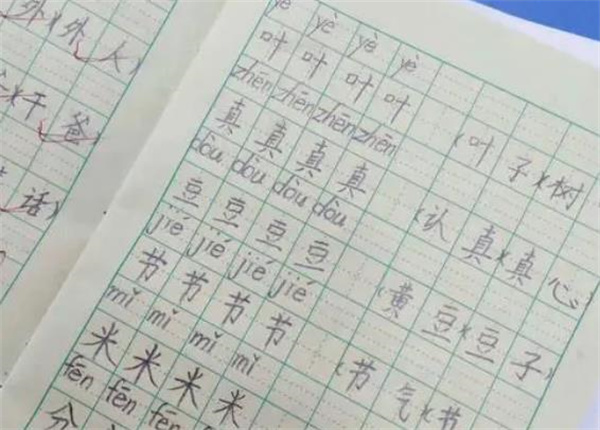 外)(外人)
)(干爸)
话)
yè yè yè yè
叶 叶 叶 叶 (叶子)(树
zhēn zhēn zhēn zhēn
真 真 真 真 (认真)(真心)
dòu dòu dòu dòu
豆 豆 豆 豆 (黄豆)(豆子)
jié jié jié jié
节 节 节 节 (节气)(节
mǐ mǐ mǐ mǐ
米 米 米 米
fēn fēn fēn fēn
分